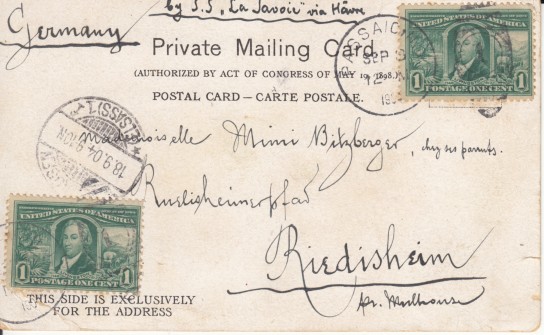 by S.S „La Savoie" via Hâvre
Germany
Private Mailing Card
(AUTHORIZED BY ACT OF CONGRESS OF MAY 19, 1898.)
POSTAL CARD—CARTE POSTALE.
PASSAIC
SEP
UNITED STATES OF AMERICA
1 1
POSTAGE ONE CENT
(ELSASS)
18.9.04.
Mademoiselle Mimi Bitzberger, chez ses parents.
Ruelisheimerpfad
Riedisheim
pr. Mulhouse
UNITED STATES OF AMERICA
1 1
POSTAGE ONE CENT
THIS SIDE IS EXCLUSIVELY
FOR THE ADDRESS